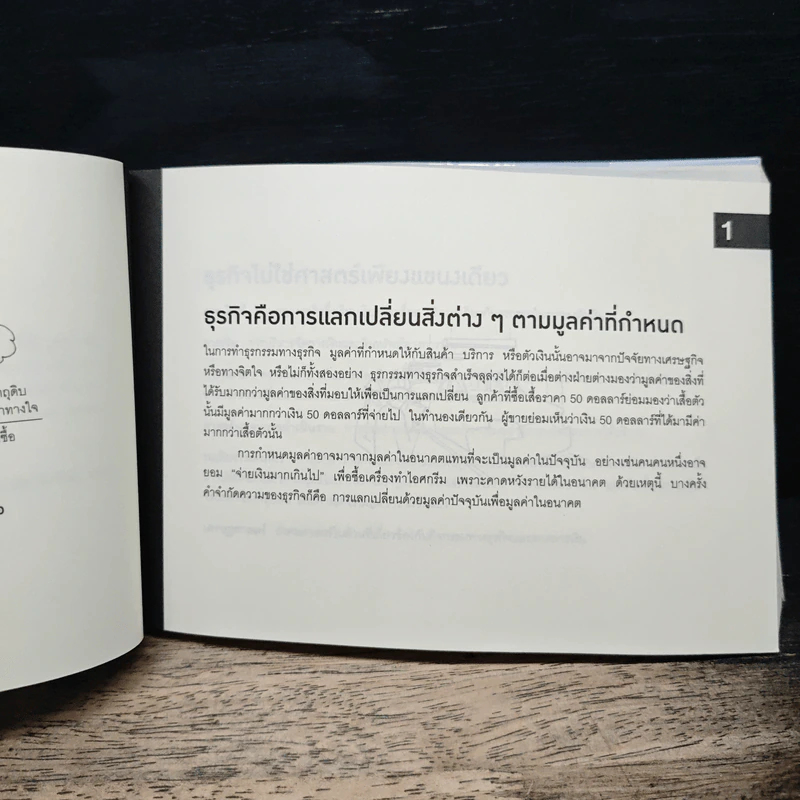 ถุดิบ
าทางใจ
ซื้อ
1
ธุรกิจคือการแลกเปลี่ยนสิ่งต่าง ๆ ตามมูลค่าที่กำหนด
ในการทำธุรกรรมทางธุรกิจ มูลค่าที่กำหนดให้กับสินค้า บริการ หรือตัวเงินนั้นอาจมาจากปัจจัยทางเศรษฐกิจ
หรือทางจิตใจ หรือไม่ก็ทั้งสองอย่าง ธุรกรรมทางธุรกิจสำเร็จลุล่วงได้ก็ต่อเมื่อต่างฝ่ายต่างมองว่ามูลค่าของสิ่งที่
ได้รับมากกว่ามูลค่าของสิ่งที่มอบให้เพื่อเป็นการแลกเปลี่ยน ลูกค้าที่ซื้อเสื้อราคา 50 ดอลลาร์ย่อมมองว่าเสื้อตัว
นั้นมีมูลค่ามากกว่าเงิน 50 ดอลลาร์ที่จ่ายไป ในทำนองเดียวกัน ผู้ขายย่อมเห็นว่าเงิน 50 ดอลลาร์ที่ได้มามีค่า
มากกว่าเสื้อตัวนั้น
การกำหนดมูลค่าอาจมาจากมูลค่าในอนาคตแทนที่จะเป็นมูลค่าในปัจจุบัน อย่างเช่นคนคนหนึ่งอาจ
ยอม “จ่ายเงินมากเกินไป” เพื่อซื้อเครื่องทำไอศกรีม เพราะคาดหวังรายได้ในอนาคต ด้วยเหตุนี้ บางครั้ง
คำจำกัดความของธุรกิจก็คือ การแลกเปลี่ยนด้วยมูลค่าปัจจุบันเพื่อมูลค่าในอนาคต